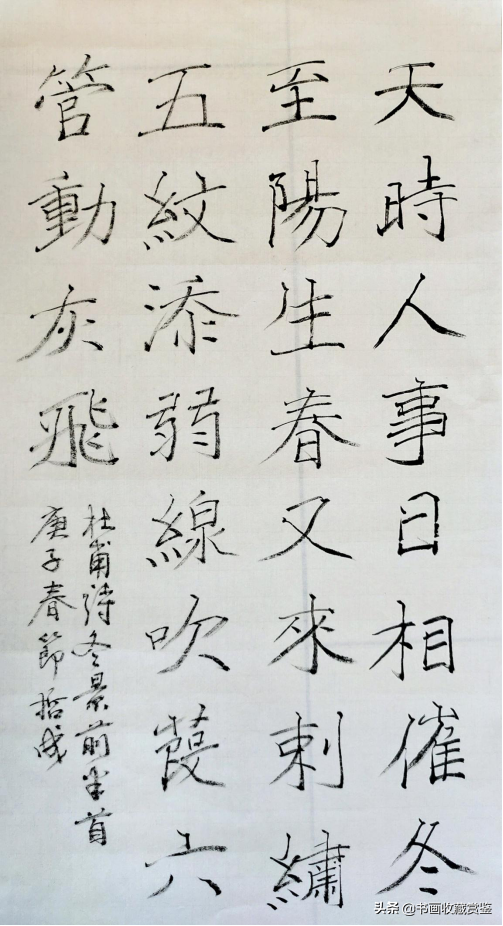 天時人事日相催冬
至陽生春又來刺繡
五紋添弱線吹葭六
管動灰飛
杜甫詩冬景前半首
庚子春節拾成
头条@书画收藏赏鉴